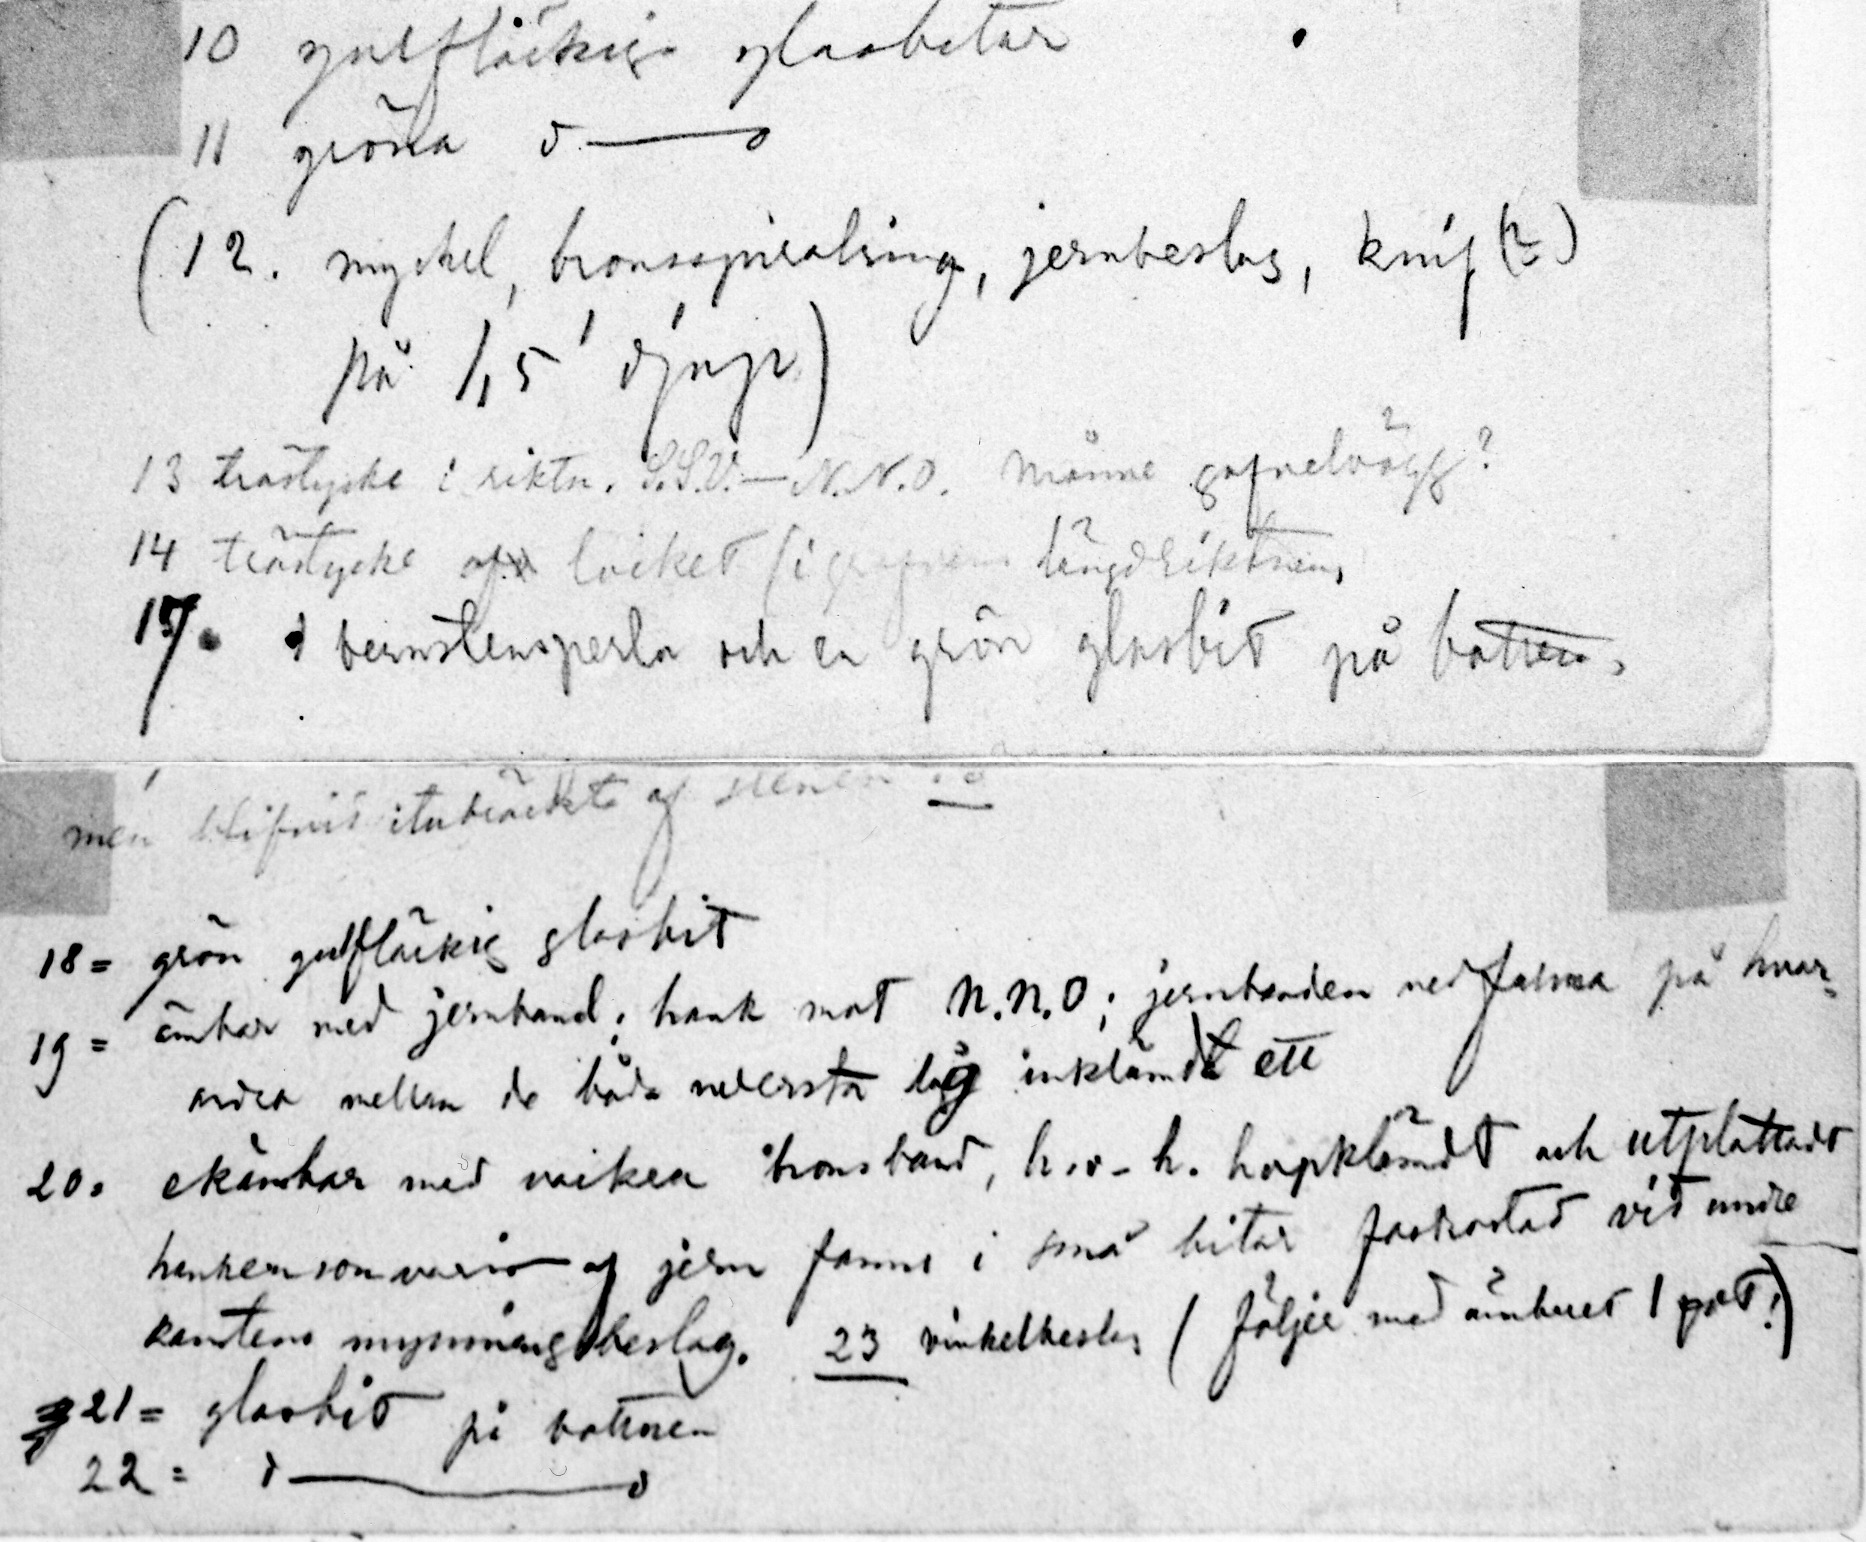 10 gulfläckiga glasbitar
11 gröna d——o
(12. nyckel, bronsspiralring, jernbeslag, knif (?)
på 1,5' djup)
13 trästycke i riktn. S.S.V.—N.N.O. Månne gafvelvägg?
14 trästycke af locket (i grafvens längdriktning
17. 1 bernstensperla och en grön glasbit på botten.
men blifvit itubräckt af stenen
18 = grön gulfläckig glasbit
19 = ämbar med jernband; hank mot N.N.O; jernbanden nedfallna på hvar-
andra mellan de båda nedersta låg inklämdt ett
20. ekämbar med vackra bronsband, h. o. h. hopklämdt och utplattadt
hanken som varit af jern fanns i små bitar fastrostad vid undre
kanten mynningsbeslag. 23 vinkelbeslag (följer med ämbaret 1 )
21 = glasbit på bottnen
22 = d——o